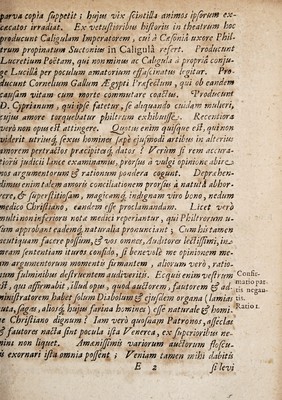 parva copia suppetit ; hujus vix scintilla animos ipsorum ex-
cæcatos irradiat. Ex vetustioribus historiis in theatrum hoc
producunt Caligulam Imperatorem, cui à Cæsoniâ uxore Phil-
trum propinatum Suctonius in Caligulâ refert. Producunt
Lucretium Poëtam, qui non minus ac Caligula à propriâ conju-
ge Lucillâ per poculum amatorium effascinatus legitur. Pro-
ducunt Cornelium Gallum Ægypti Præfectum, qui ob eandem
causam vitam cum morte commutare coactus. Producunt
D. Cyprianum, qui ipse fatetur, se aliquando cuidam mulieri,
cujus amore torquebatur philtrum exhibuisse. Recentiora
verò non opus est attingere. Quotus enim quisque est, qui non
viderit utriusq; sexus homines sæpè ejusmodi artibus in alterius
amorem pertractos præcipitesq; datos ? Verum si rem accura-
tioris judicii lance examinamus, prorsus à vulgi opinione abire
nos argumentorum & rationum pondera cogunt. Deprehen-
dimus enim talem amoris conciliationem prorsus à naturâ abhor-
rere, & superstitiosam, magicamq; indignam viro bono, nedum
medico Christiano, eandem esse proclamandam. Licet verò
multi non inferioris nota medici reperiantur, qui Philtrorum u-
sum approbant eademq; naturalia pronunciant ; Cum his tamen
facere possum, & vos omnes, Auditores lectissimi, in
sententiam ituros confido, si benevolè me opinionem me-
am argumentorum momento firmantem, aliorum verò, ratio-
num fulminibus destruentem audiveritis. Ecquis enim vestrûm
est, qui affirmabit, illud opus, quod auctorem, fautorem & ad-
ministratorem habet solum Diabolum & ejusdem organa (lamias
puta, sagas, aliosq; hujus farinæ homines) esse naturale & homi-
ne Christiano dignum ? Iam verò quosnam Patronos, asseclas
& fautores nacta sint pocula ista Venerea, ex superioribus ne-
mini non liquet. Amœnissimis variorum auctorum floscu-
lis exornari ista omnia possent ; Veniam tamen mihi dabitis
Confir-
matio par-
tis negan-
tis.
Ratio 1.
E 2
si levi